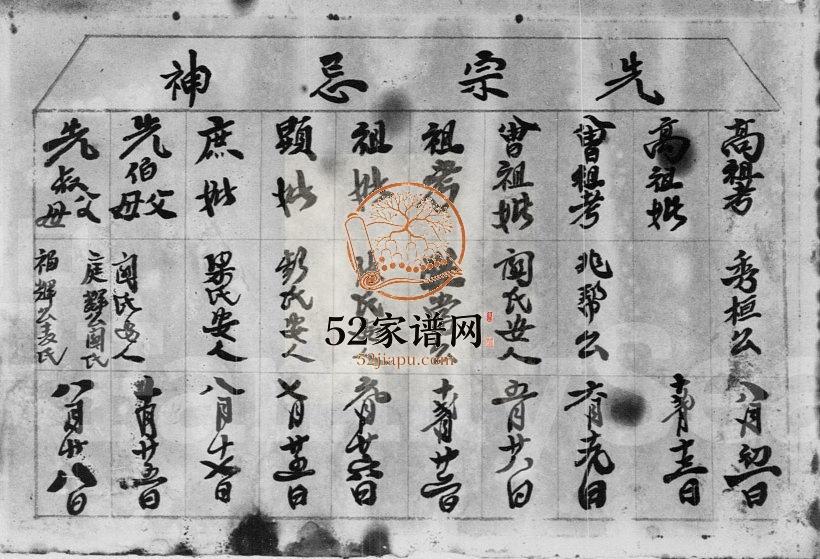 先宗忌神
高祖考
秀桓公
八月初一日
高祖妣
十二月十三日
曾祖考
兆帮公
六月廿九日
曾祖妣
阎氏安人
五月廿八日
祖考
十一月廿二日
祖妣
氏
六月廿六日
顕妣
彭氏安人
七月廿五日
庶妣
梁氏安人
八月十七日
先伯父母
庭辉公阎氏
阎氏安人
十一月廿五日
先叔父母
福辉公麦氏
八月廿八日
52家谱网
52jiapu.com